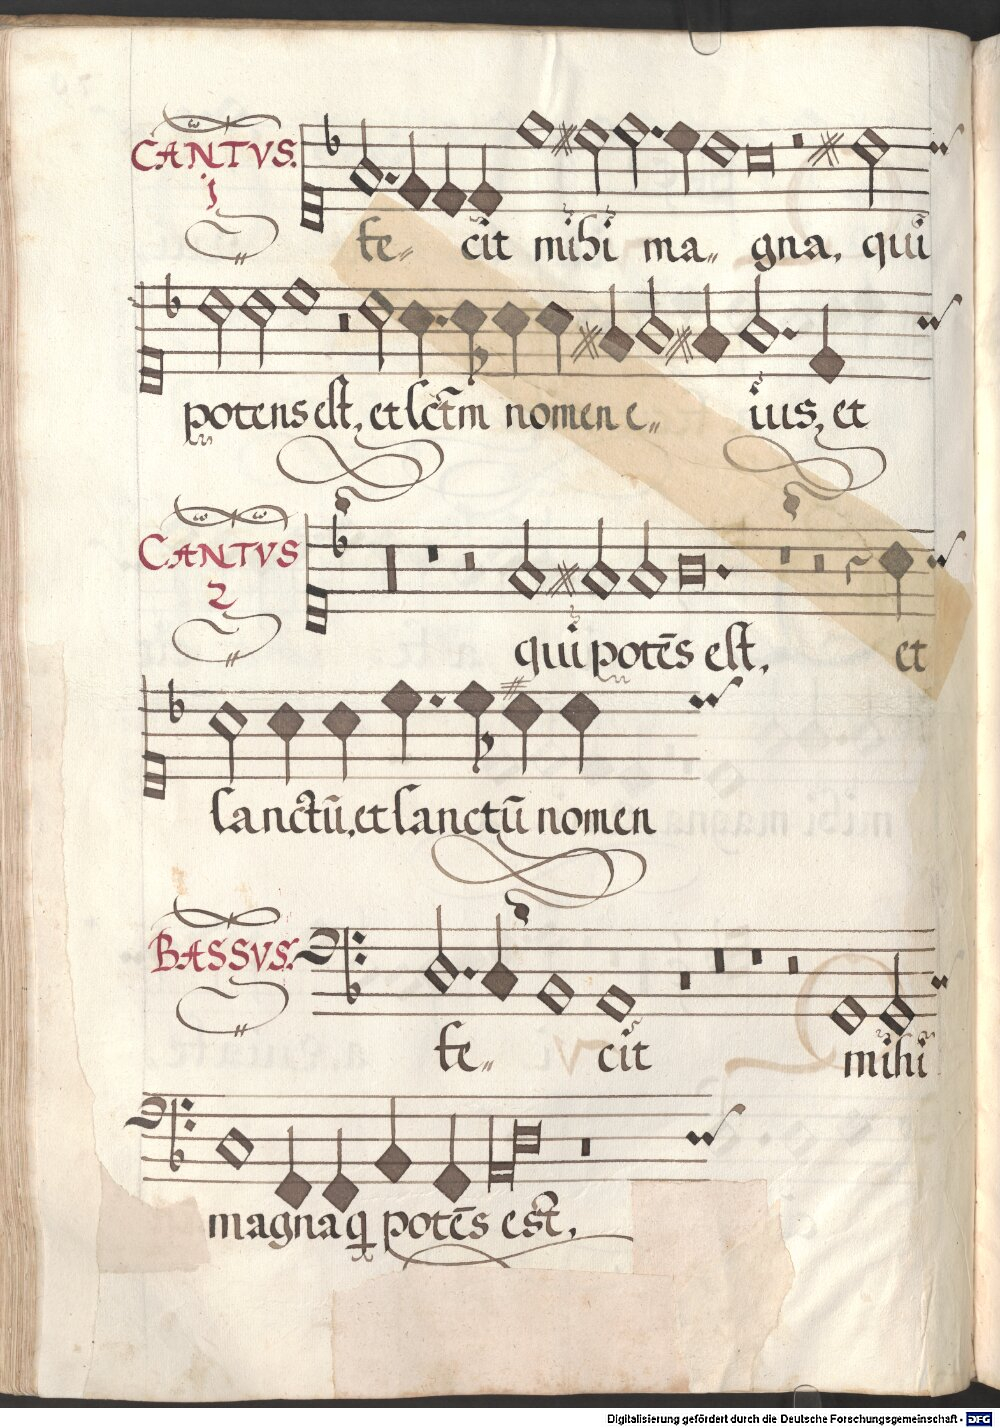 CANTVS.
1
fe„ cit mihi ma„ gna, qui
potens est, et sctm̄ nomen e„ ius, et
CANTVS
2
qui potēs est, et
sanctū, et sanctū nomen
BASSVS.
fe„ cit mihi
magna q̄ potēs est,
Digitalisierung gefördert durch die Deutsche Forschungsgemeinschaft - DFG